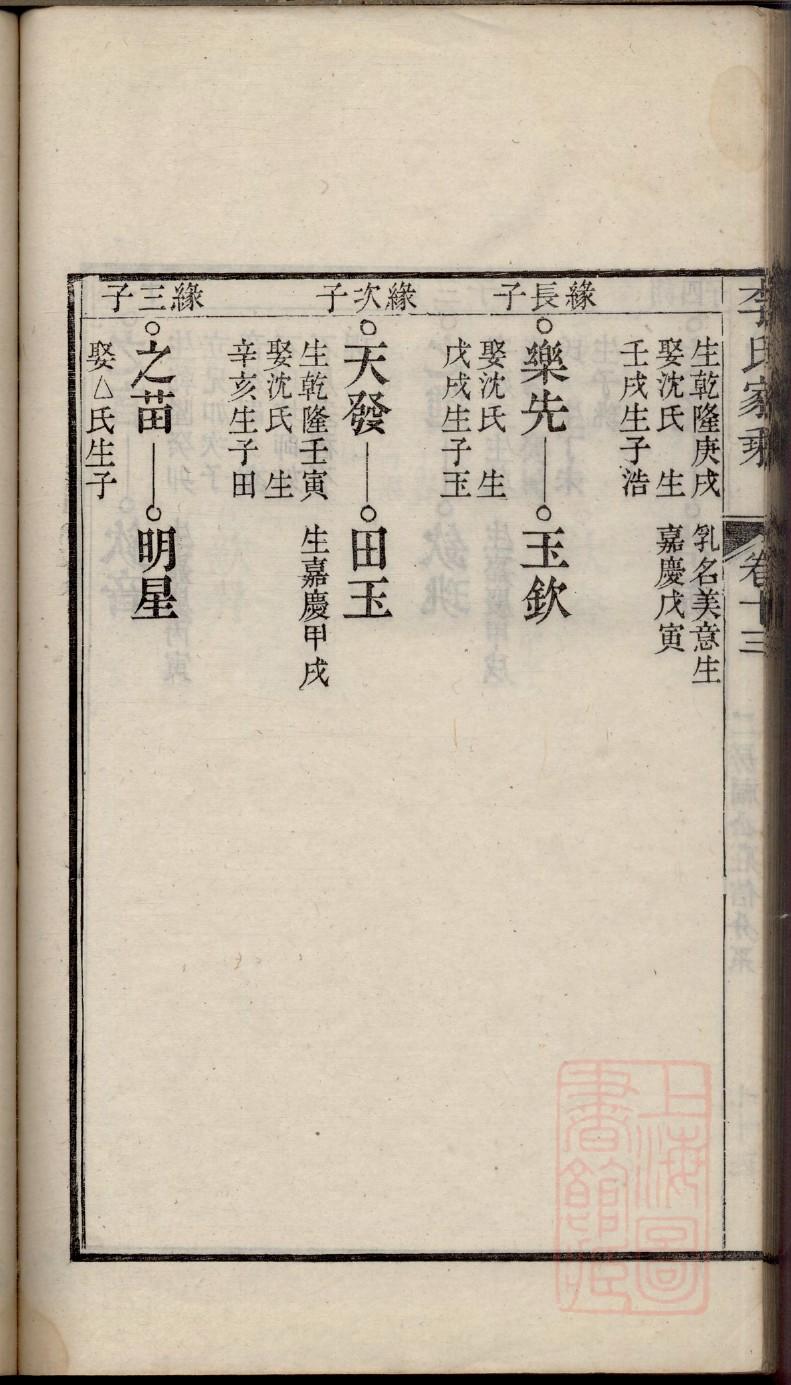 李氏家乘 卷十三
生乾隆庚戌
娶沈氏 生
壬戌生子浩
乳名美意生
嘉慶戊寅
緣長子
樂先 玉欽
娶沈氏 生
戊戌生子玉
緣次子
天發 田玉
生乾隆壬寅
娶沈氏 生
辛亥生子田
生嘉慶甲戌
緣三子
之苗 明星
娶厶氏生子
上海圖
書館藏